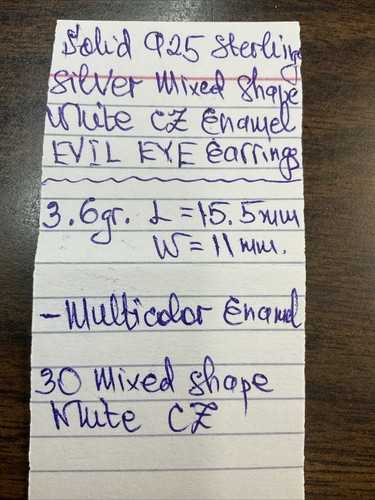 Solid 925 Sterling
Silver Mixed Shape
White CZ Enamel
EVIL EYE Earrings
3.6gr. L=15.5mm
W=11mm.
-Multicolor Enamel
30 Mixed Shape
White CZ